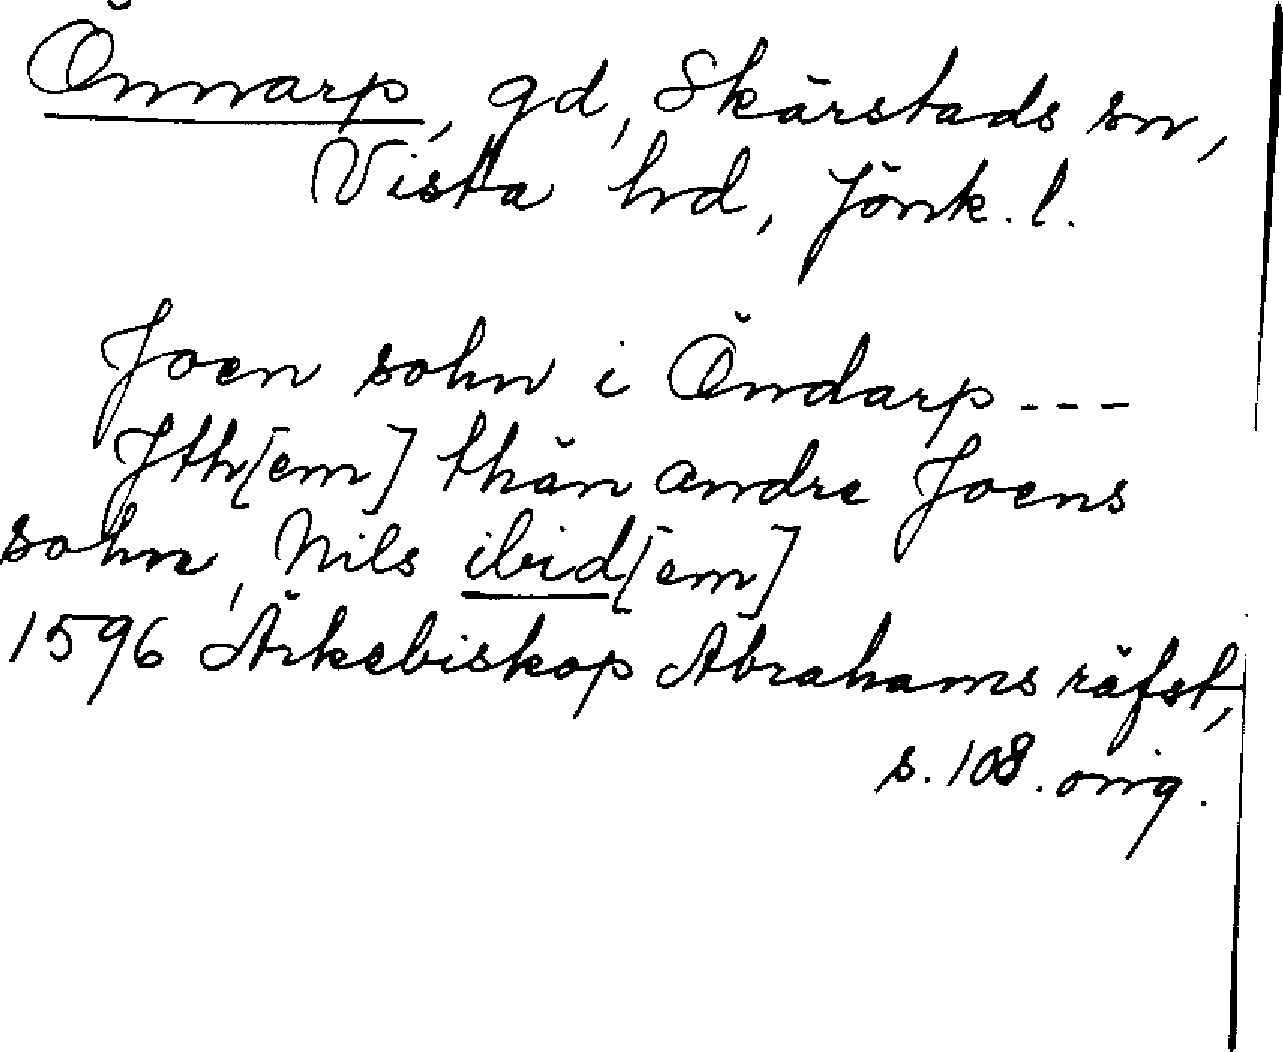 Önnarp, gd, Skärstads sn,
Vista hd, Jönk. l.
Joen sohn i Öndarp ---
Jth[em] thän andre Joens
sohn, Nils ibid[em]
1596 Ärkebiskop Abrahams räfst,
s. 108. orig.